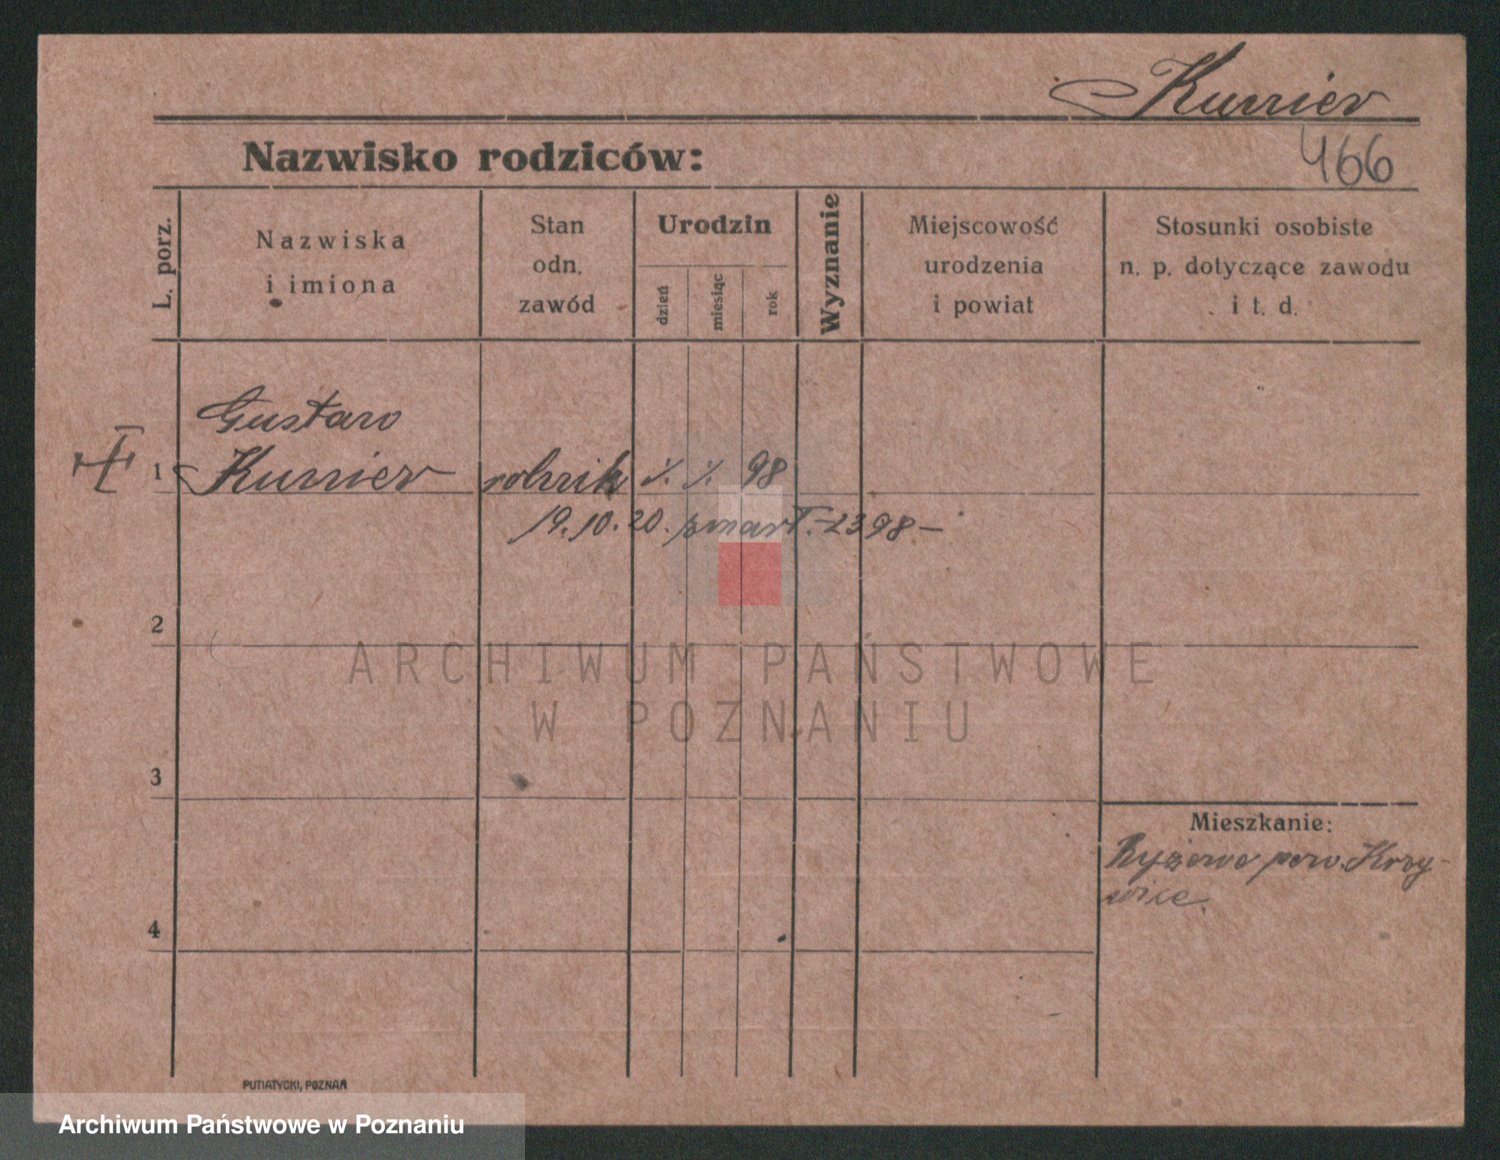 Kurrier
466
Nazwisko rodziców:
L. porz.
Nazwiska
i imiona
Stan
odn.
zawód
Urodzin
dzień
miesiąc
rok
Wyznanie
Miejscowość
urodzenia
i powiat
Stosunki osobiste
n. p. dotyczące zawodu
i t. d.
Gustaw
1 Kurrier robnik 98
19.10.20. zmarł. 2398 –
2
ARCHIWUM PAŃSTWOWE
W POZNANIU
3
Mieszkanie:
pow. Krzy-
wice.
4
PUTIATYCKI, POZNAŃ
Archiwum Państwowe w Poznaniu